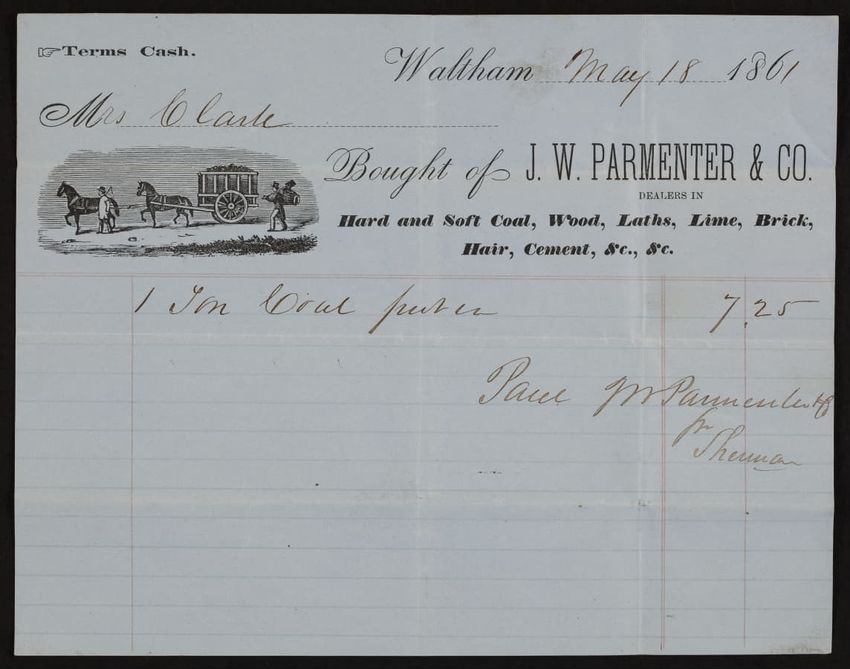 ☞Terms Cash.
Waltham May 18 1861
Mrs Clark
Bought of J. W. PARMENTER & CO.
DEALERS IN
Hard and Soft Coal, Wood, Laths, Lime, Brick,
Hair, Cement, &c., &c.
1 Ton Coal put in 7.25
Paid JW Parmenter &
Sherman